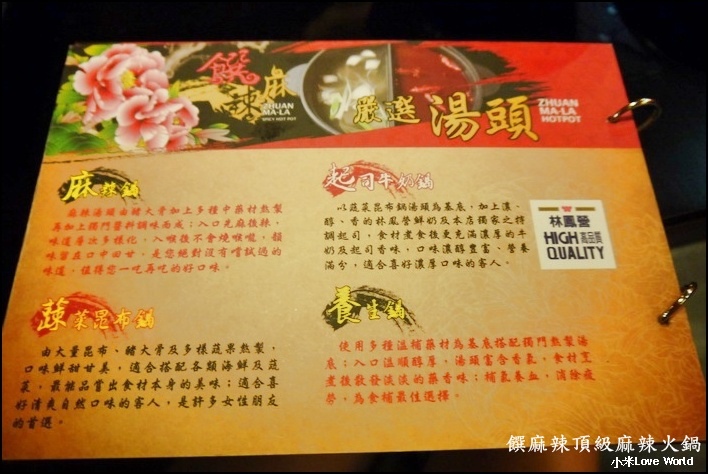 饌麻辣
ZHUAN
MA-LA
SPICY HOT POT
嚴選湯頭
ZHUAN
MA-LA
HOTPOT
麻辣鍋
麻辣湯頭由豬大骨加上多種中藥材熬製
再加上獨門醬料調味而成；入口先麻後辣，
味道層次多樣化，入喉後不會燒喉嚨，韻
味留在口中回甘，是您絕對沒有嘗試過的
味道，值得您一吃再吃的好口味。
起司牛奶鍋
以蔬菜昆布鍋湯頭為基底，加上濃、
醇、香的林鳳營鮮奶及本店獨家之特
調起司，食材煮食後更充滿濃厚的牛
奶及起司香味，口味濃醇豐富、營養
滿分，適合喜好濃厚口味的客人。
林鳳營
HIGH 高品質
QUALITY
蔬菜昆布鍋
由大量昆布、豬大骨及多樣蔬果熬製，
口味鮮甜甘美，適合搭配各類海鮮及蔬
菜，最能品嘗出食材本身的美味；適合喜
好清爽自然口味的客人，是許多女性朋友
的首選。
養生鍋
使用多種溫補藥材為基底搭配獨門熬製湯
底；入口溫順醇厚，湯頭富含香氣，食材烹
煮後散發淡淡的藥香味；補氣養血，消除疲
勞，為食補最佳選擇。
饌麻辣頂級麻辣火鍋
小米Love World